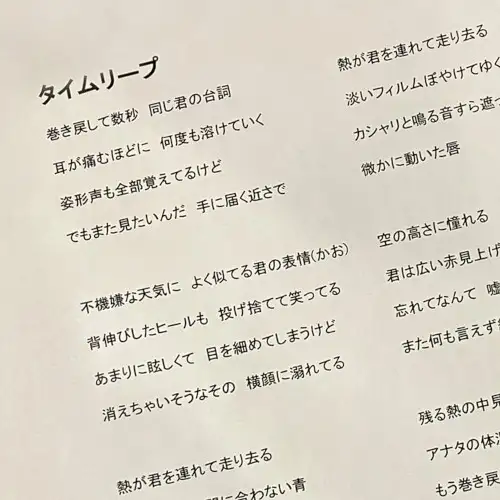 タイムリープ
巻き戻して数秒 同じ君の台詞
耳が痛むほどに 何度も溶けていく
姿形声も全部覚えてるけど
でもまた見たいんだ 手に届く近さで
不機嫌な天気に よく似てる君の表情(かお)
背伸びしたヒールも 投げ捨てて笑ってる
あまりに眩しくて 目を細めてしまうけど
消えちゃいそうなその 横顔に溺れてる
熱が君を連れて走り去る
に合わない青
熱が君を連れて走り去る
淡いフィルムぼやけてゆく
カシャリと鳴る音すら遮
微かに動いた唇
空の高さに憧れる
君は広い赤見上げ
忘れてなんて 嘘
また何も言えず
残る熱の中見
アナタの体温
もう巻き戻